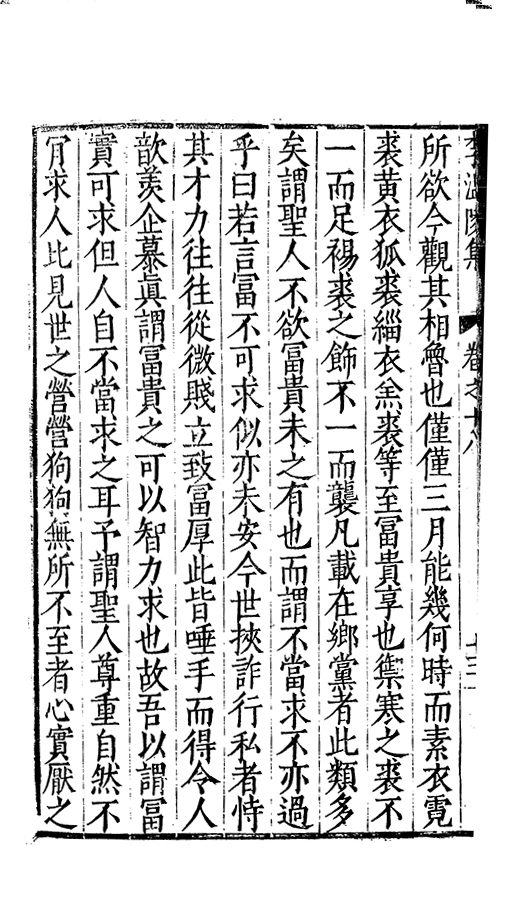 李溫陵集 卷之十八
所欲今觀其相魯也僅僅三月能幾何時而素衣霓
裘黄衣狐裘緇衣羔裘等至冨貴享也禦寒之裘不
一而足裼裘之飾不一而襲凡載在鄉黨者此類多
矣謂聖人不欲冨貴未之有也而謂不當求不亦過
乎曰若言冨不可求似亦未安今世挾詐行私者恃
其才力往往從微賤立致冨厚此皆唾手而得令人
歆羡企慕眞謂冨貴之可以智力求也故吾以謂冨
實可求但人自不當求之耳予謂聖人尊重自然不
肎求人比見世之營營狗狗無所不至者心實厭之